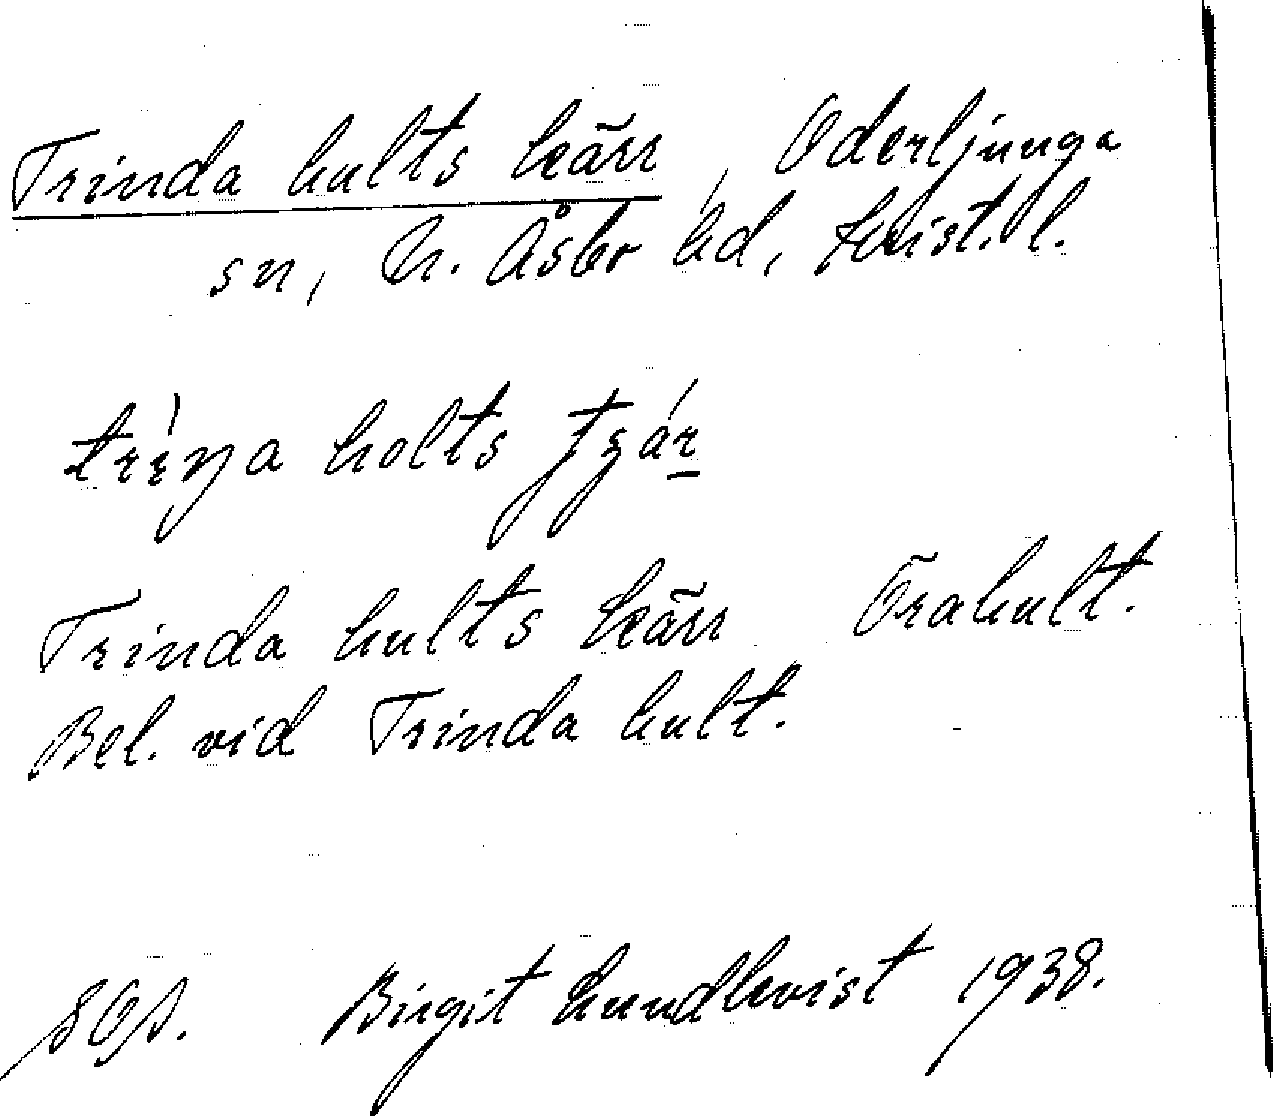 Trinda hults kärr, Oderljunga
sn, N. Åsbo hd, Krist. l.
holts
Trinda hults kärr Örahult.
Bel. vid Trinda hult.
Birgit Lundkvist 1938.